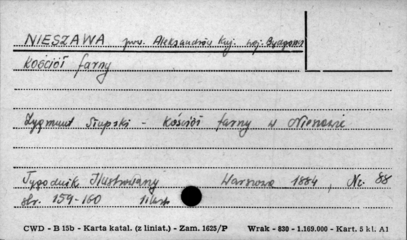 NIESZAWA pow. Aleksandrów Kuj. woj. Bydgoszcz
Kościół farny
Zygmunt Słupski - Kościół farny w Nieszawie
Tygodnik Ilustrowany Warszawa 1884, Nr 88
str. 159-160
CWD - B 15b - Karta katal. (z liniat.) - Zam. 1625/P Wrak - 830 - 1.169.000 - Kart. 5 kl. A1